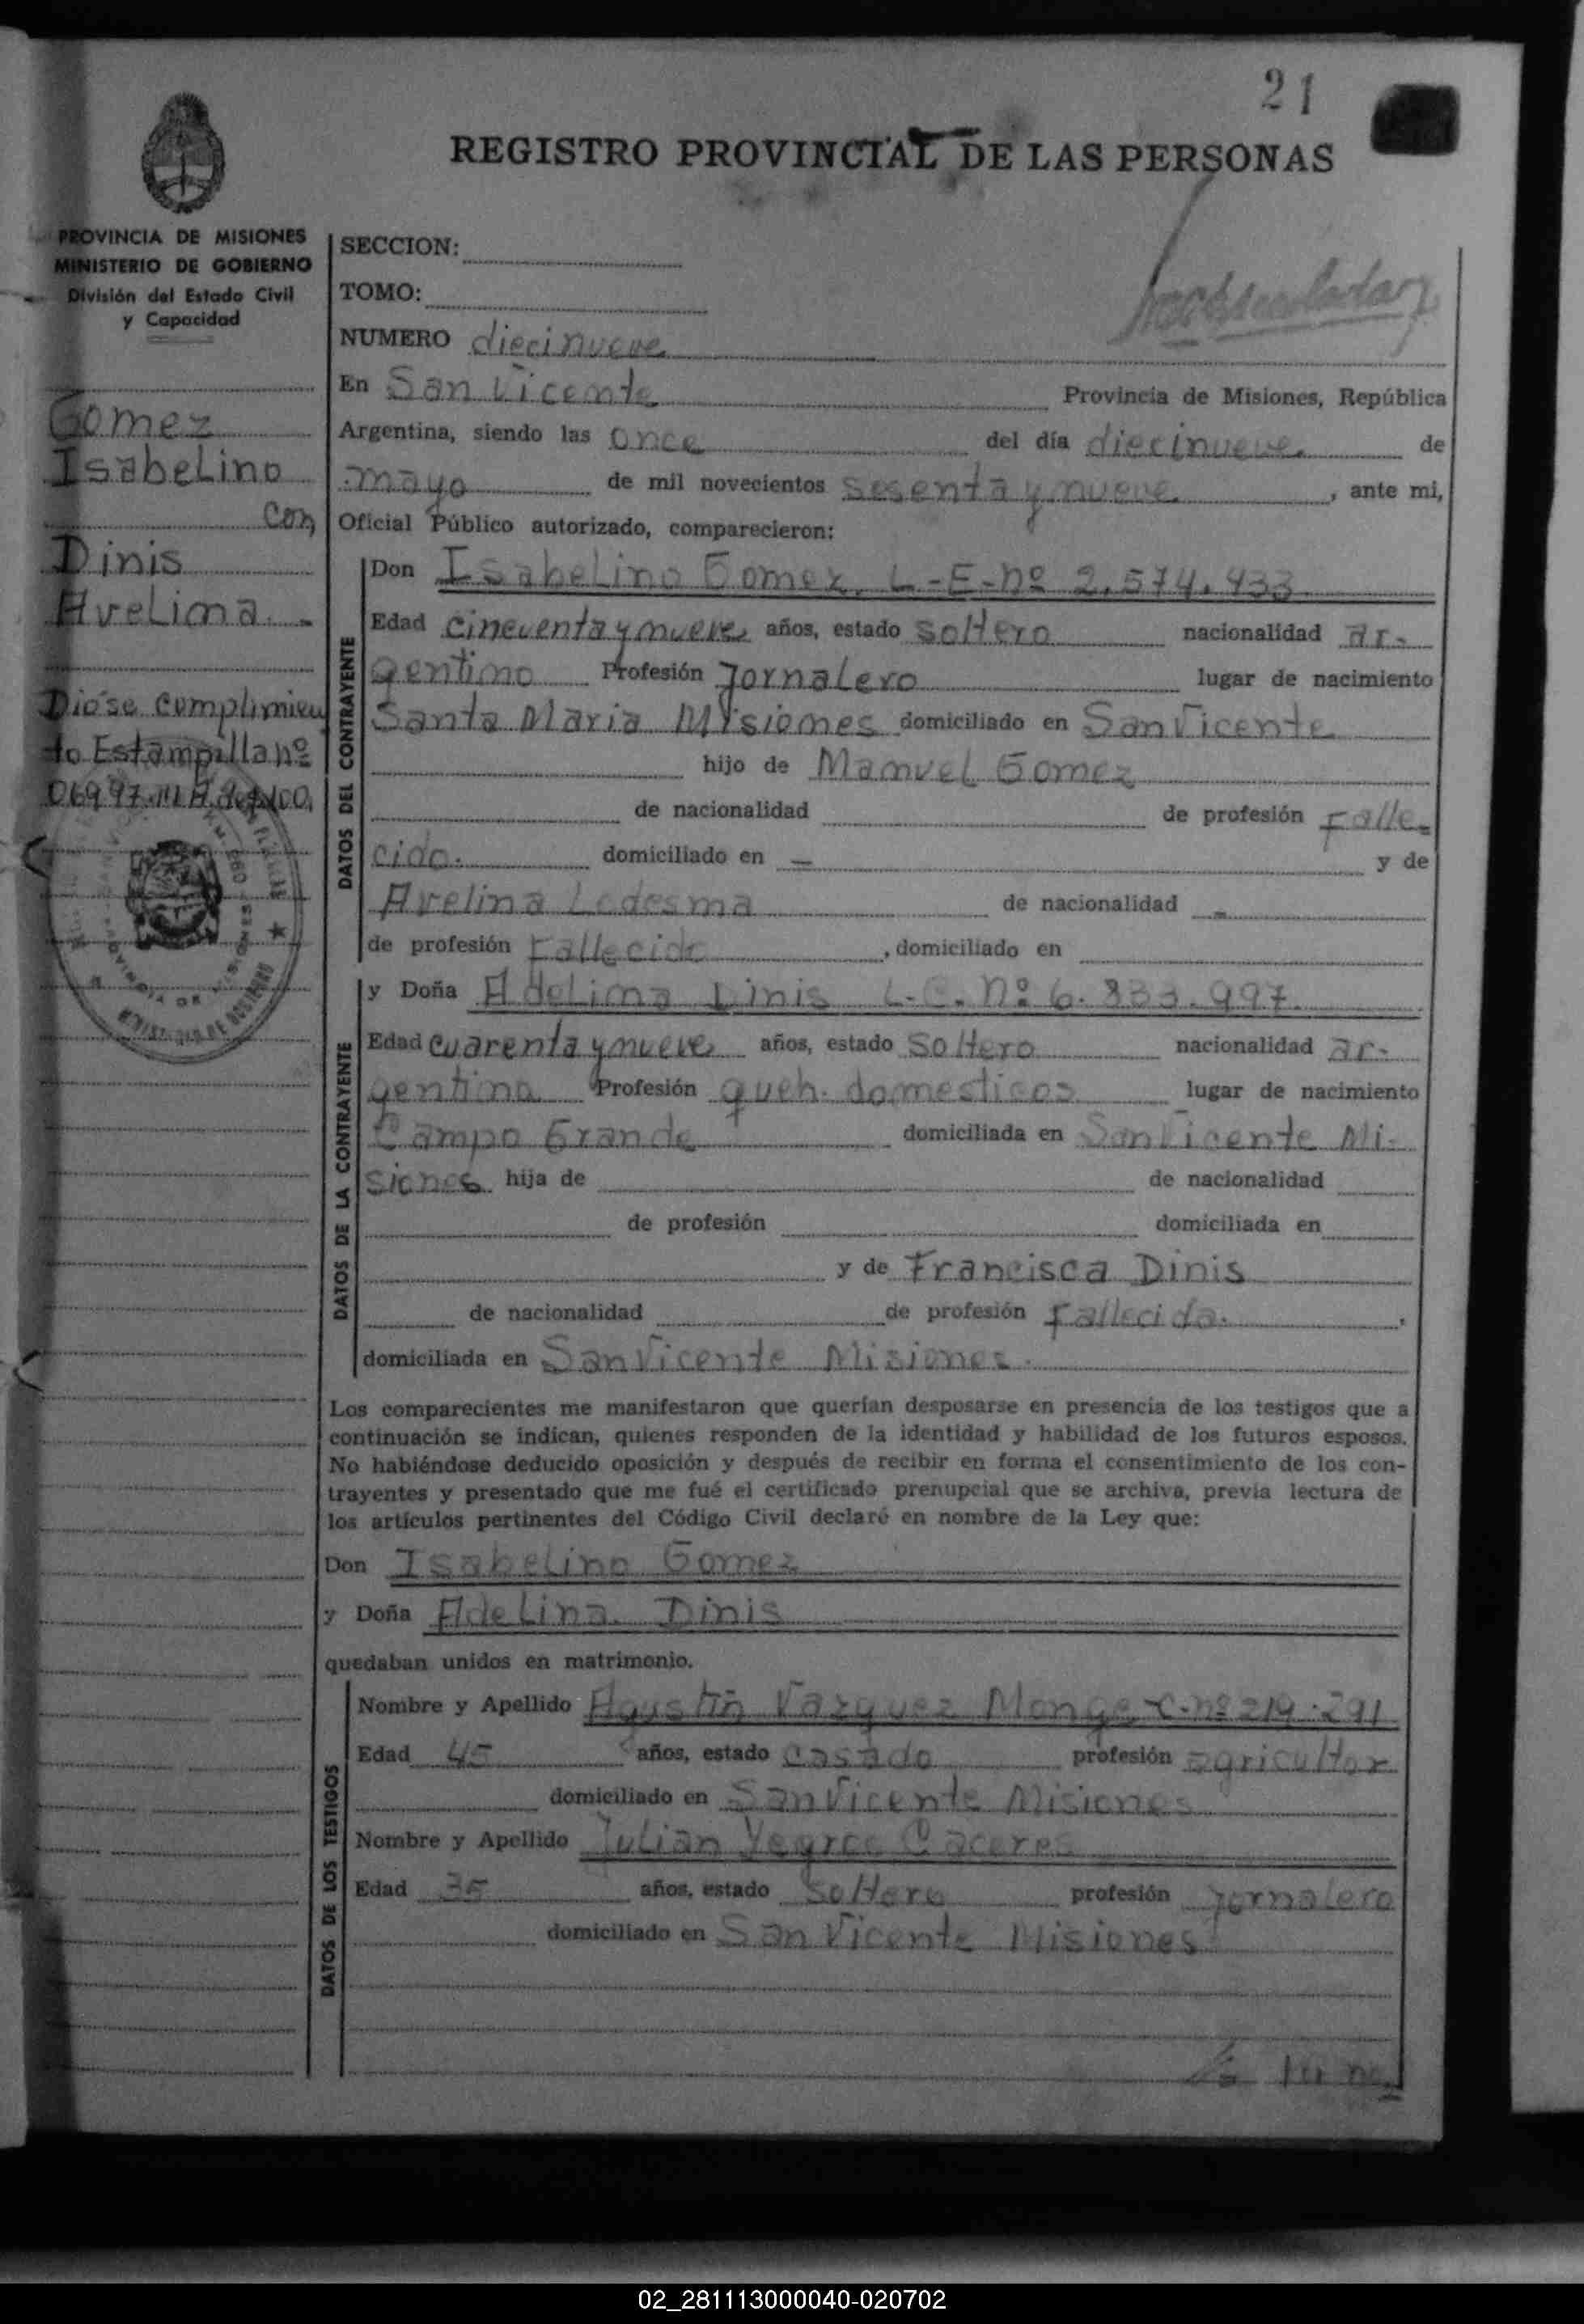 21
REGISTRO PROVINCIAL DE LAS PERSONAS
PROVINCIA DE MISIONES
MINISTERIO DE GOBIERNO
División del Estado Civil
y Capacidad
Gomez
Isabelino
con
Dinis
Avelima.-
Dióse cumplimien
to Estampilla nº
SECCION:
TOMO:
NUMERO diecinueve
En San Vicente Provincia de Misiones, República
Argentina, siendo las once del día diecinueve de
mayo de mil novecientos sesenta y nueve, ante mi,
Oficial Público autorizado, comparecieron:
DATOS DEL CONTRAYENTE
Don Isabelino Gomez L-E-nº 2.574.433
Edad cincuenta y nueve años, estado soltero nacionalidad ar-
gentino Profesión Jornalero lugar de nacimiento
Santa Maria Misiones domiciliado en San Vicente
hijo de Manuel Gomez
de nacionalidad de profesión Falle-
cido. domiciliado en — y de
Avelina Ledesma de nacionalidad -
de profesión Fallecida, domiciliado en
DATOS DE LA CONTRAYENTE
y Doña Adelima Dinis L.C. nº 6.833.997
Edad cuarenta y nueve años, estado soltero nacionalidad ar-
gentina Profesión queh. domesticos lugar de nacimiento
Campo Grande domiciliada en San Vicente Mi-
siones hija de de nacionalidad
de profesión domiciliada en
y de Francisca Dinis
de nacionalidad de profesión Fallecida.,
domiciliada en San Vicente Misiones.
Los comparecientes me manifestaron que querían desposarse en presencia de los testigos que a
continuación se indican, quienes responden de la identidad y habilidad de los futuros esposos.
No habiéndose deducido oposición y después de recibir en forma el consentimiento de los con-
trayentes y presentado que me fué el certificado prenupcial que se archiva, previa lectura de
los artículos pertinentes del Código Civil declaré en nombre de la Ley que:
Don Isabelino Gomez
y Doña Adelina Dinis
quedaban unidos en matrimonio.
DATOS DE LOS TESTIGOS
Nombre y Apellido Agustin Vazquez Monge C. nº 219.291
Edad 45 años, estado casado profesión agricultor
domiciliado en San Vicente Misiones
Nombre y Apellido Julian Yegros Caceres
Edad 35 años, estado soltero profesión jornalero
domiciliado en San Vicente Misiones
02_281113000040-020702